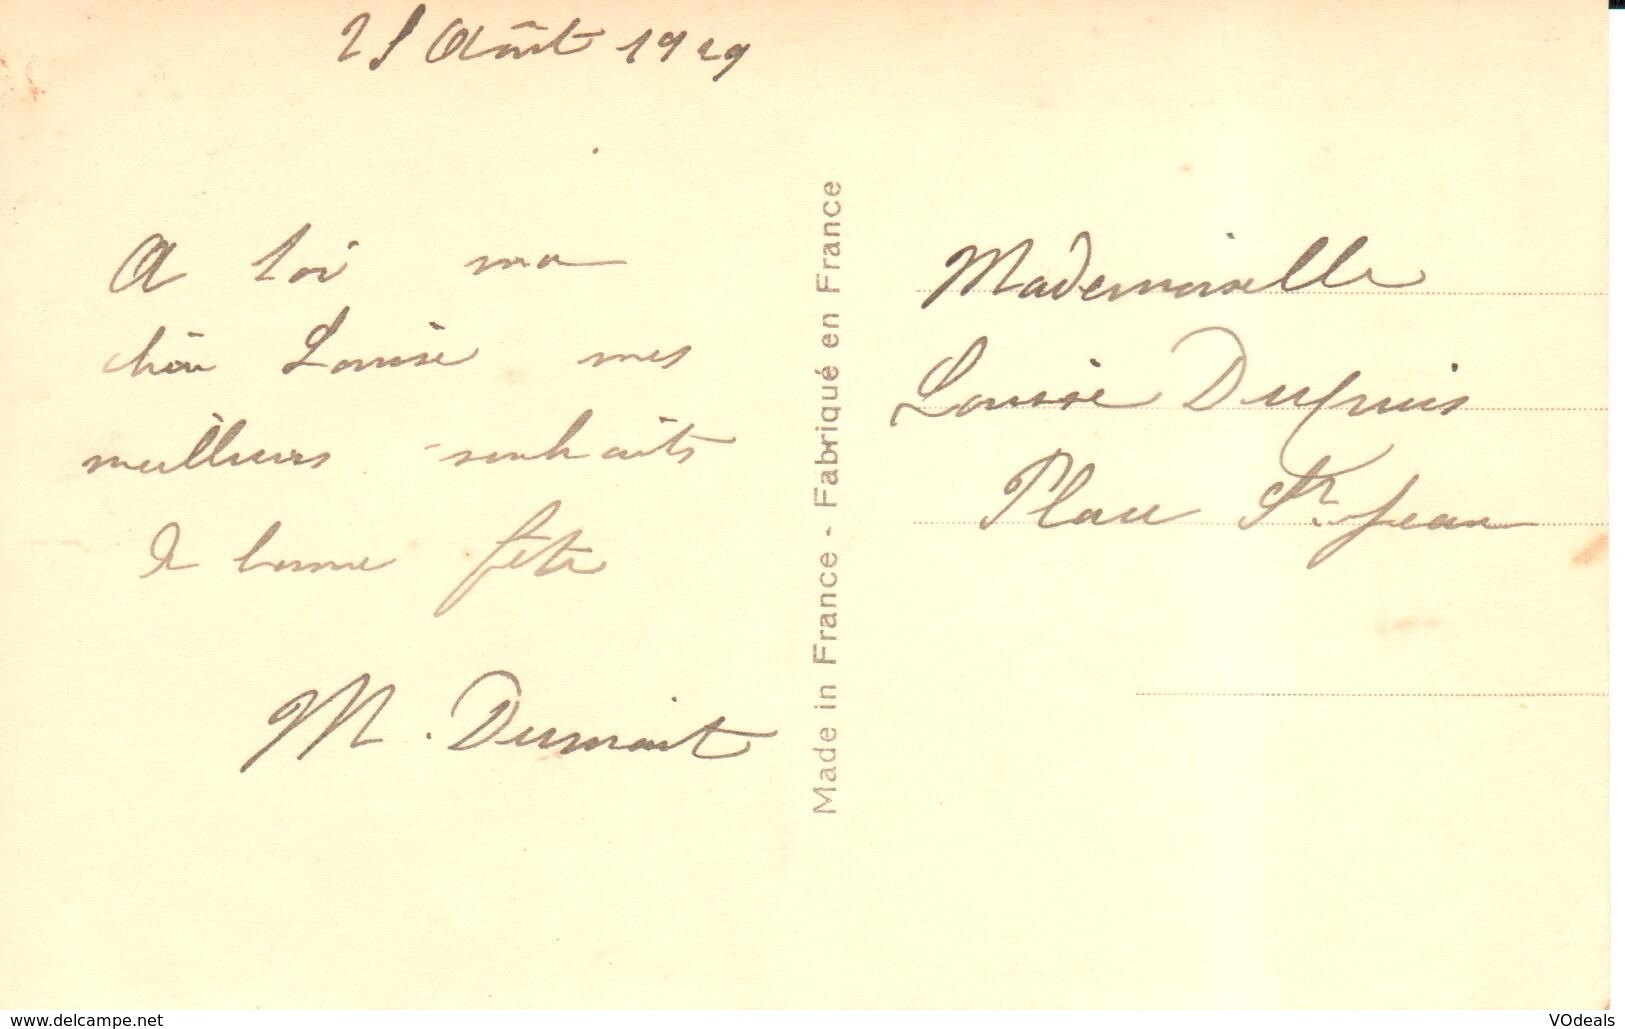 25 Août 1929
A toi ma
chère Louise mes
meilleurs souhaits
de bonne fête
M. Dumont
Made in France - Fabriqué en France
Mademoiselle
Louise Dupuis
Place St. Jean
www.delcampe.net
VOdeals